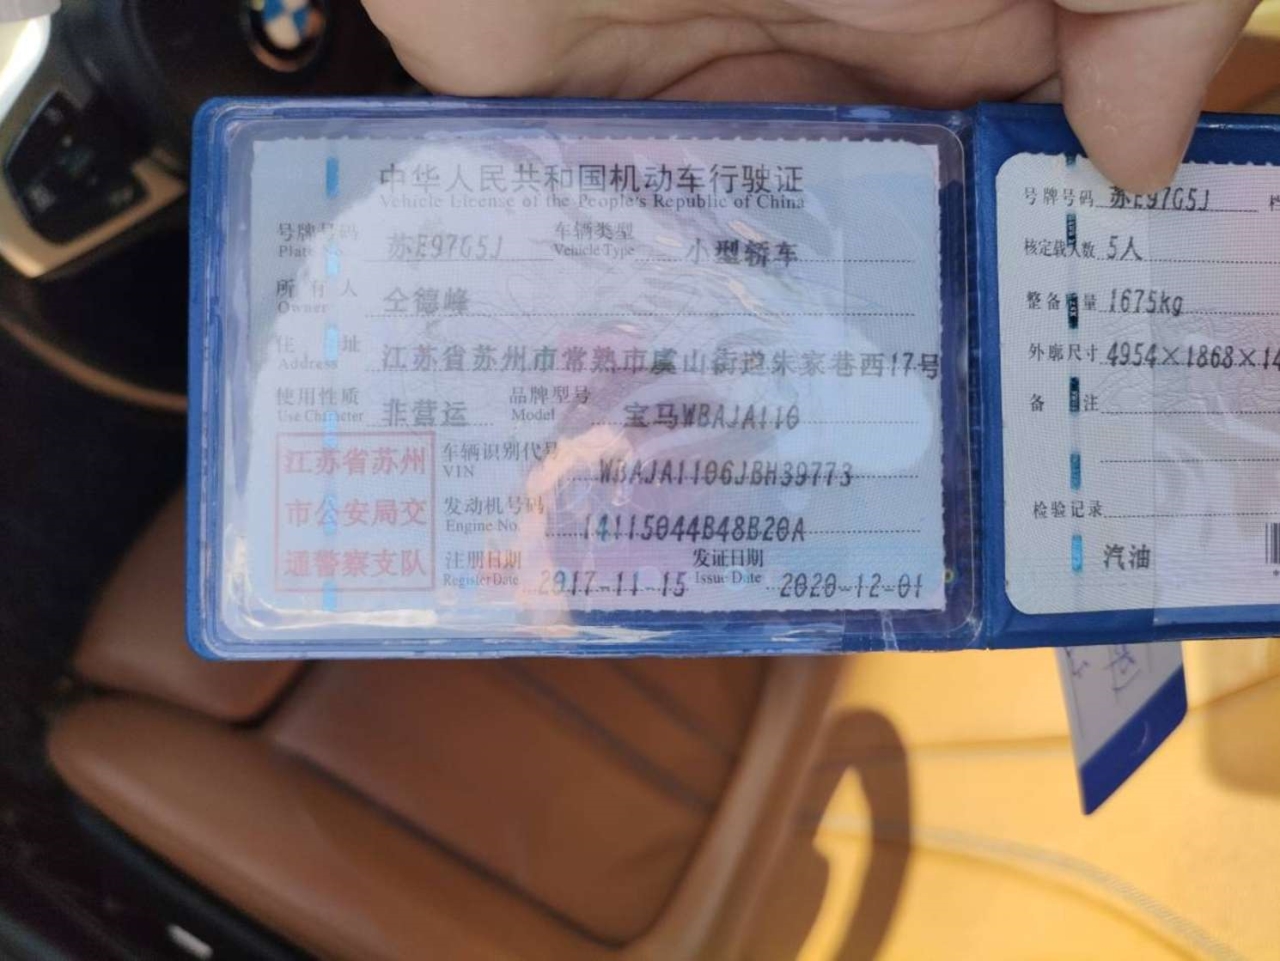 中华人民共和国机动车行驶证
Vehicle License of the People's Republic of China
号牌号码 苏E97G5J 车辆类型 小型轿车
Plate No Vehicle Type
所有人 仝德峰
Owner
住址 江苏省苏州市常熟市虞山街道朱家巷西17号
Address
使用性质 非营运 品牌型号 宝马WBAJA110
Use Character Model
江苏省苏州
市公安局交
通警察支队
车辆识别代号 WBAJA1106JBH39773
VIN
发动机号码 14115044B48B20A
Engine No.
注册日期 2017-11-15 发证日期 2020-12-01
Register Date Issue Date
号牌号码 苏E97G5J
核定载人数 5人
整备质量 1675kg
外廓尺寸 4954×1868×14
备注
检验记录
汽油